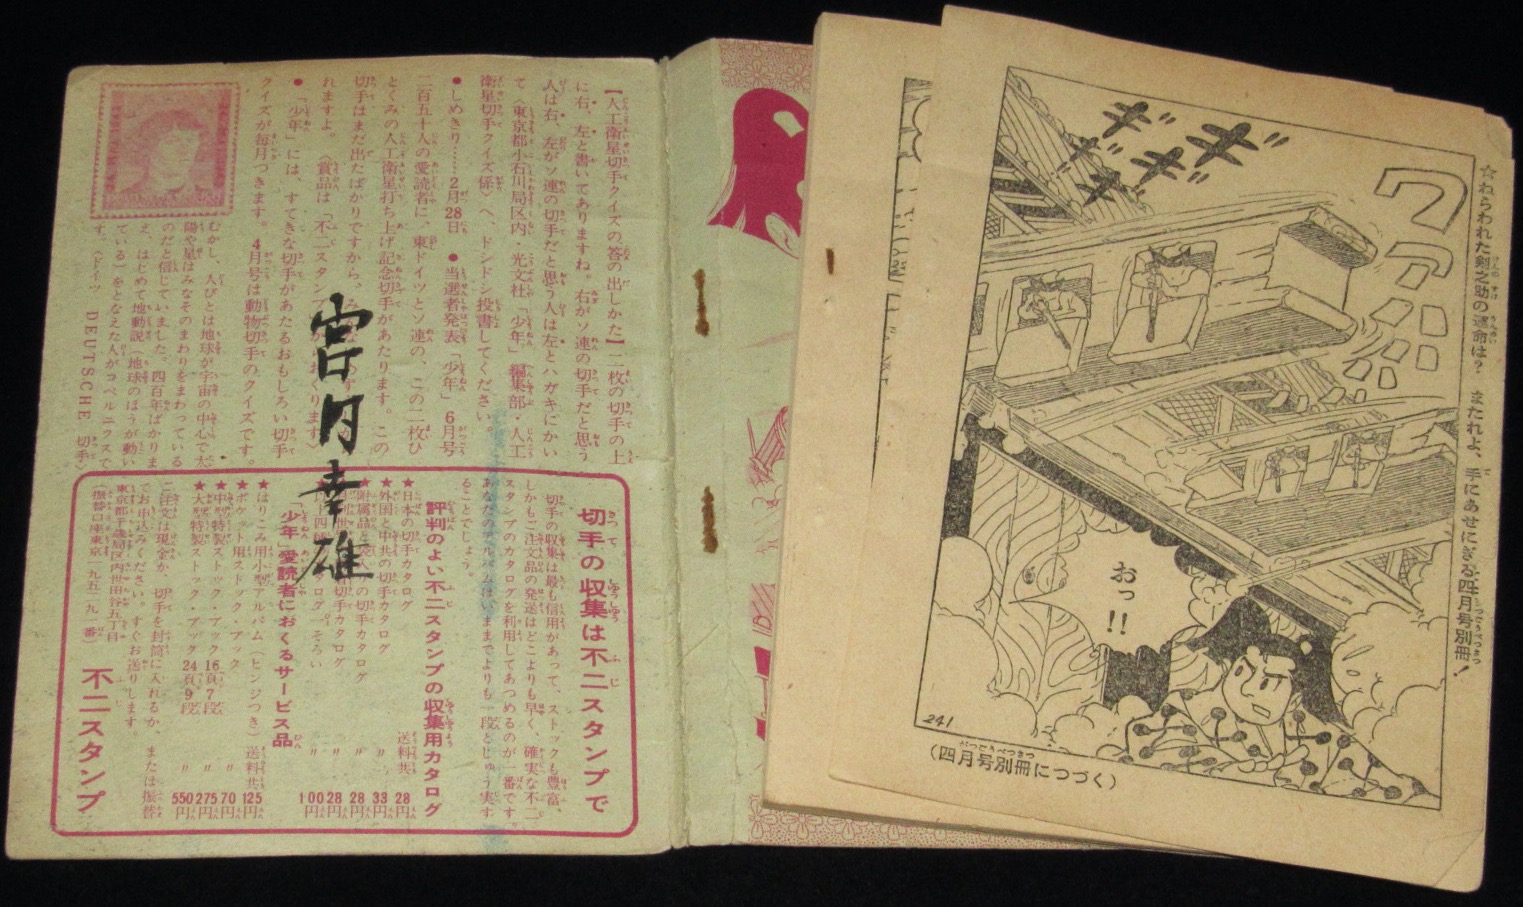 ☆ねらわれた剣之助の運命は? またれよ、手にあせにぎる四月号別冊!
ワァハハハ
ギギギギ
おっ!!
241
(四月号別冊につづく)
【人工衛星切手クイズの答の出しかた】二枚の切手の上
に右、左と書いてありますね。右がソ連の切手だと思う
人は右、左がソ連の切手だと思う人は左とハガキにかい
て〈東京都小石川局区内・光文社「少年」編集部・人工
衛星切手クイズ係〉へ、ドンドン投書してください。
●しめきり……2月28日 ●当選者発表「少年」6月号
二百五十人の愛読者に、東ドイツとソ連の、この二枚ひ
とくみの人工衛星打ち上げ記念切手があたります。この
切手はまだ出たばかりですから、み
れますよ。〈賞品は「不二スタンプ おくります〉
●「少年」には、すてきな切手があたるおもしろい切手
クイズが毎月つきます。4月号は動物切手のクイズです。
むかし、人びとは地球が宇宙の中心で太
陽や星はみなそのまわりをまわっている
のだと信じていました。四百年ばかりま
え、はじめて地動説(地球のほうが動い
ている)をとなえた人がコペルニクスで
す。(ドイツ DEUTSCHE 切手)
宮内幸雄
切手の収集は不二スタンプで
切手の収集は最も信用があって、ストックも豊富、
しかもご注文品の発送はどこよりも早く、確実な不二
スタンプのカタログを利用してあつめるのが一番です。
あなたのアルバムはいままでよりも一段とじゅう実す
ることでしょう。
評判のよい不二スタンプの収集用カタログ
★日本の切手カタログ 送料共 28円
★外国と中共の切手カタログ 〃 33円
★附属品と 切手カタログ 〃 28円
切手カタログ 〃 28円
タログ一そろい 〃 100円
「少年」愛読者におくるサービス品
★はりこみ用小型アルバム(ヒンジつき) 送料共 125円
★ポケット用ストック・ブック 〃 70円
★中型特製ストック・ブック 16頁7段 〃 275円
★大型特製ストック・ブック 24頁9段 〃 550円
ご注文は現金か、切手を封筒に入れるか、または振替
でお申込みください。すぐお送りします。
東京都千歳局区内世田谷五丁目
(振替口座東京一九五一九番)
不二スタンプ